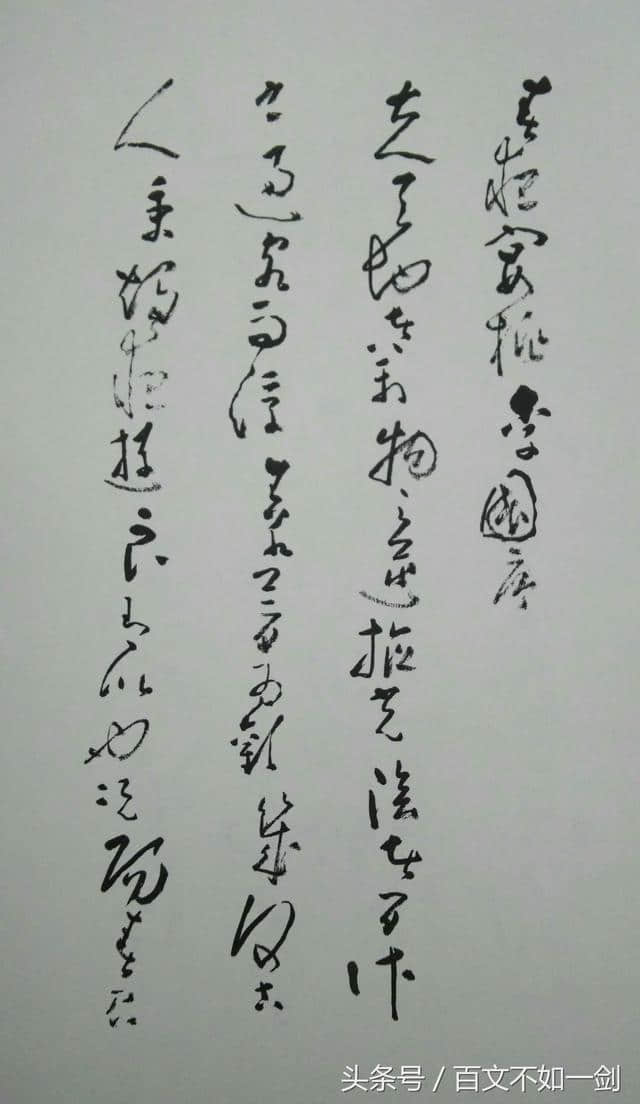 春夜宴桃李園序
夫天地者萬物之逆旅光陰者百代
之過客而浮生若夢為歡幾何古
人秉燭夜遊良有以也況陽春召
头条号／百文不如一剑